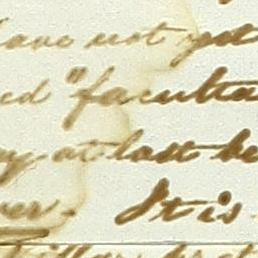 have not yet
ed "faculta
ey at last be
ver. It is